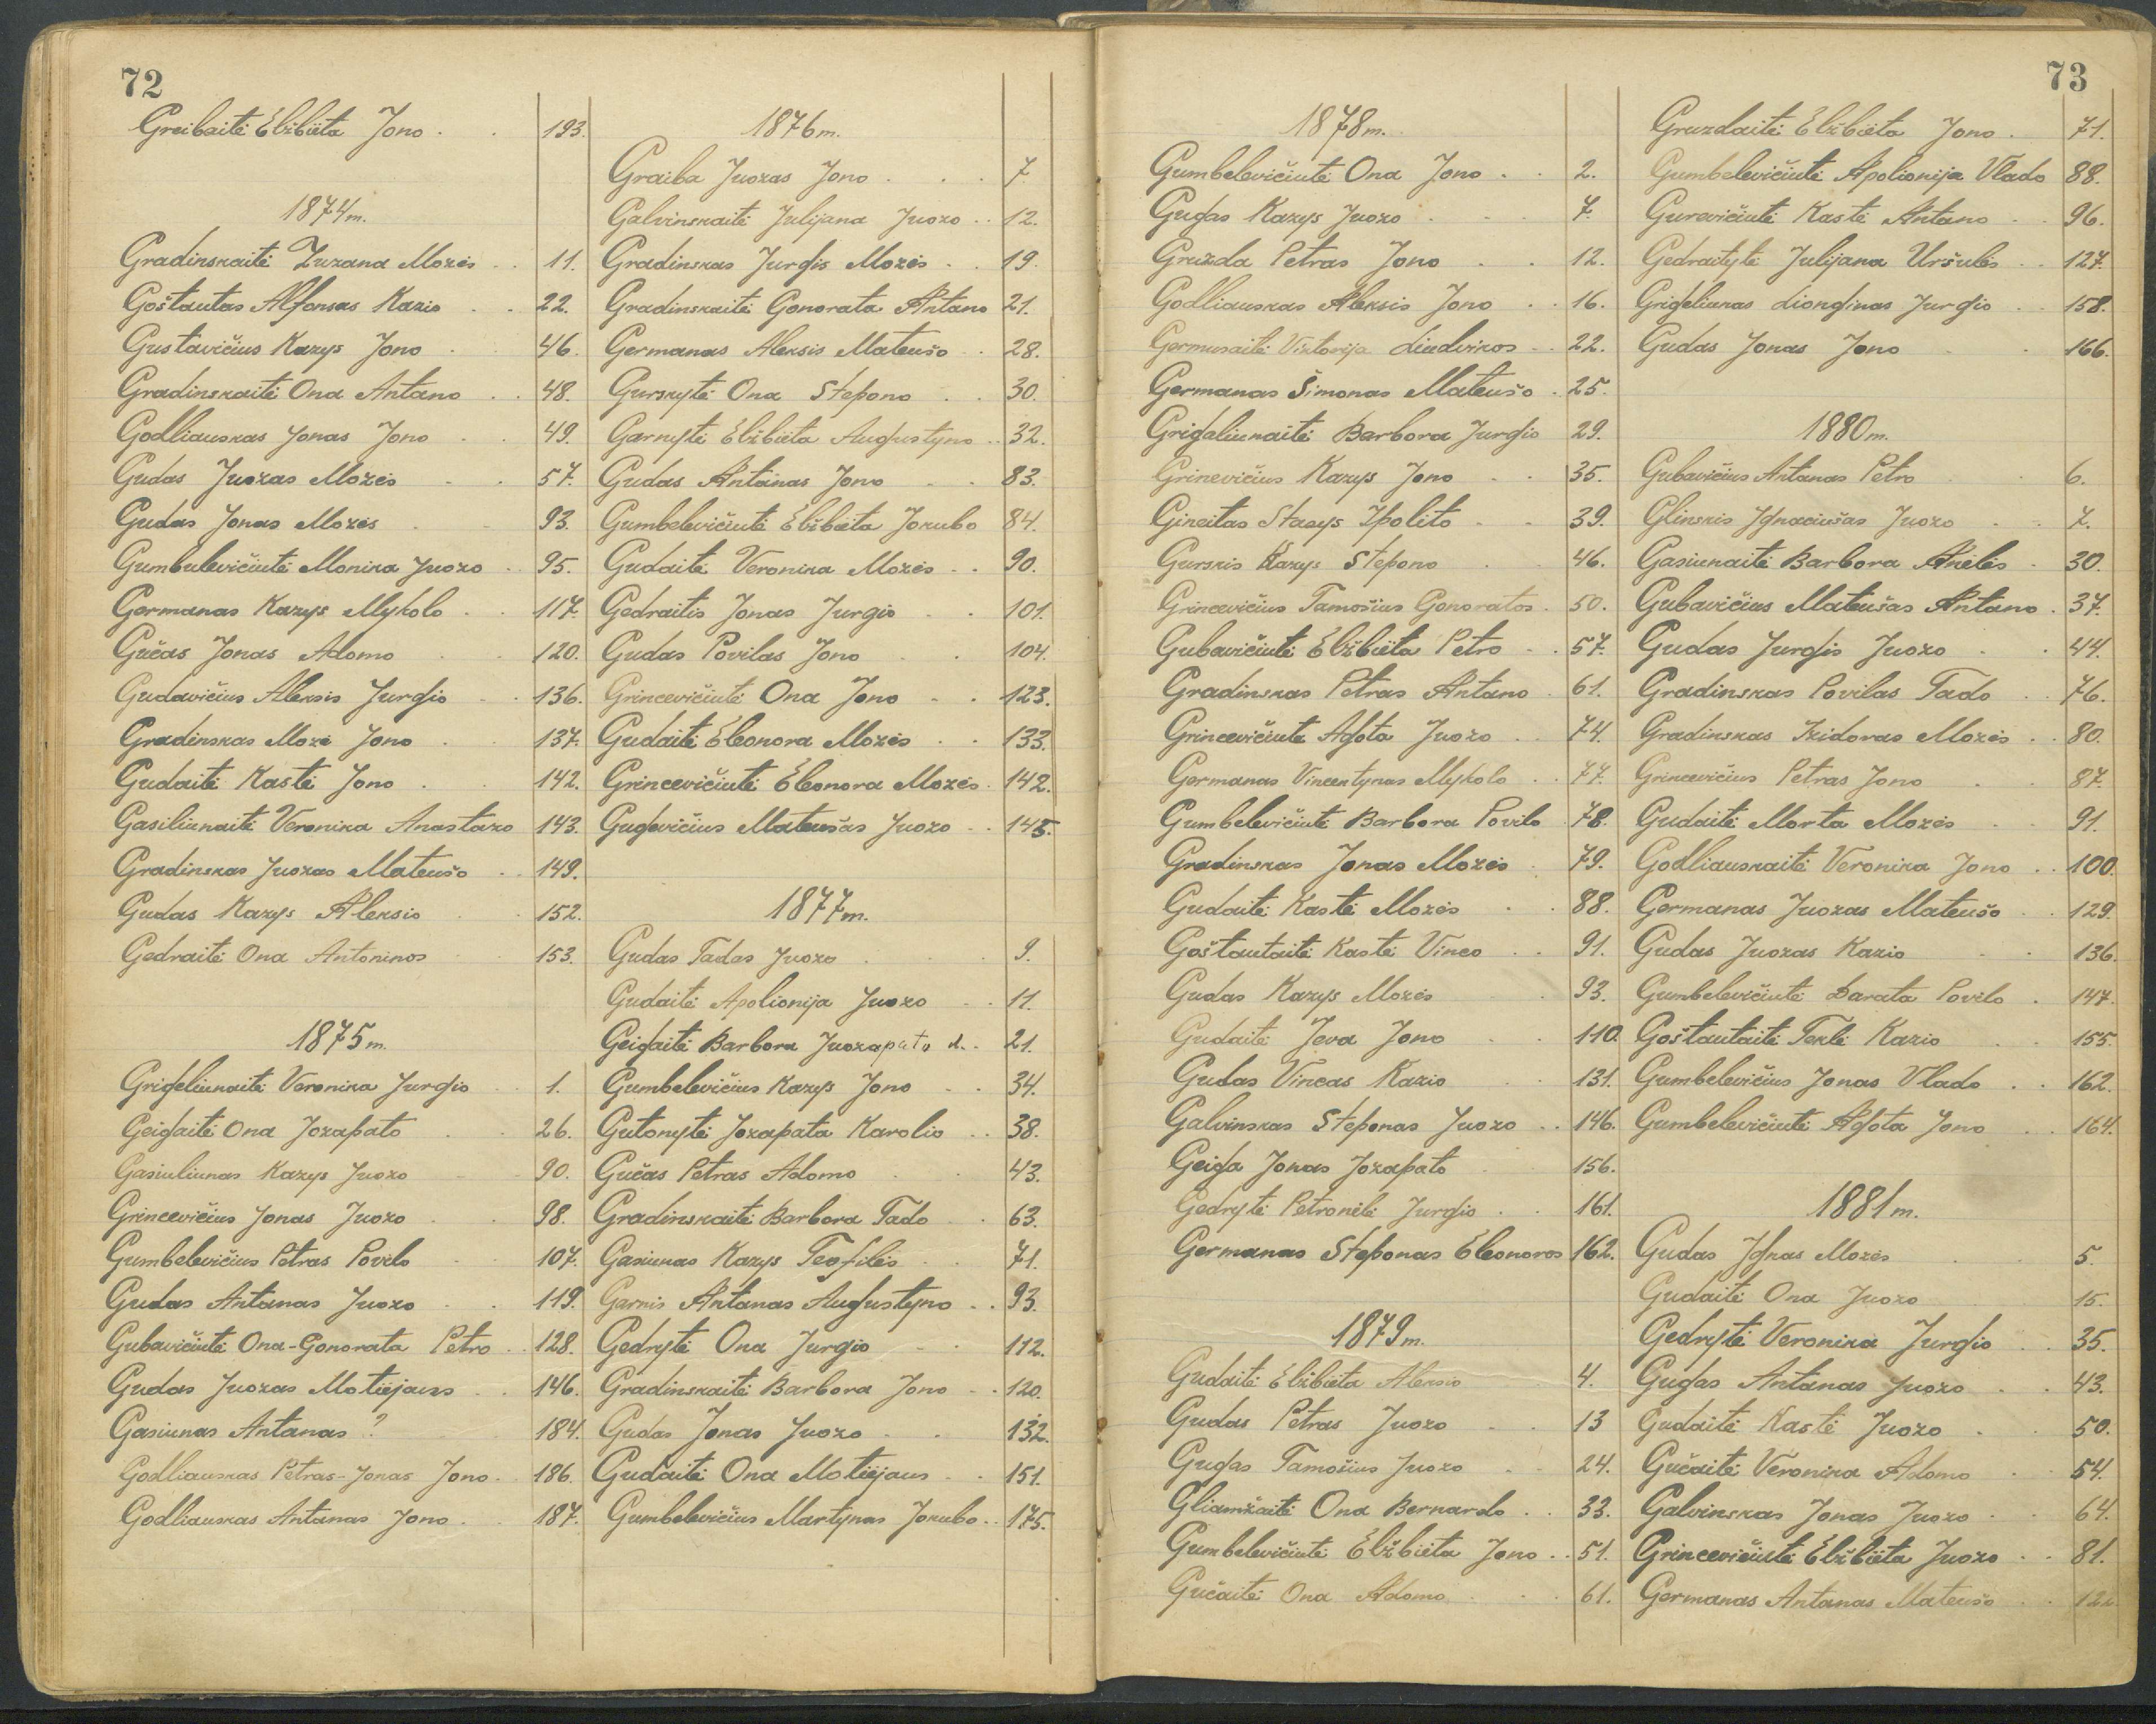 72
Greibaitė Elžbieta Jono 193.
1874 m.
Gradinskaitė Zuzana Mozės 11.
Goštautas Alfonsas Kazio 22.
Gustavičius Kazys Jono 46.
Gradinskaitė Ona Antano 48.
Godliauskas Jonas Jono 49.
Gudas Juozas Mozės 57.
Gudas Jonas Mozės 93.
Gumbulevičiutė Monika Juozo 95.
Germanas Kazys Mykolo 117.
Gučas Jonas Adomo 120.
Gudavičius Aleksis Jurgio 136.
Gradinskas Mozė Jono 137.
Gudaitė Kastė Jono 142.
Gasiliunaitė Veronika Anastazo 143.
Gradinskas Juozas Mateušo 149.
Gudas Kazys Aleksio 152.
Gedraitė Ona Antoninos 153.
1875 m.
Grigeliunaitė Veronika Jurgio 1.
Geigaitė Ona Jozapato 26.
Gasiuliunas Kazys Juozo 90.
Grincevičius Jonas Juozo 98.
Gumbelevičius Petras Povilo 107.
Gudas Antanas Juozo 119.
Gubavičiutė Ona-Gonorata Petro 128.
Gudas Juozas Motiejaus 146.
Gasiunas Antanas ? 184.
Godliauskas Petras-Jonas Jono 186.
Godliauskas Antanas Jono 187.
1876 m.
Graiba Juozas Jono 7.
Galvinskaitė Julijana Juozo 12.
Gradinskas Jurgis Mozės 19.
Gradinskaitė Gonorata Antano 21.
Germanas Aleksis Mateušo 28.
Gurskytė Ona Stepono 30.
Garnytė Elžbieta Augustyno 32.
Gudas Antanas Jono 83.
Gumbelevičiutė Elžbieta Jokubo 84.
Gudaitė Veronika Mozės 90.
Gedraitis Jonas Jurgio 101.
Gudas Povilas Jono 104.
Grincevičiutė Ona Jono 123.
Gudaitė Eleonora Mozės 133.
Grincevičiutė Eleonora Mozės 142.
Gugevičius Mateušas Juozo 145.
1877 m.
Gudas Tadas Juozo 9.
Gudaitė Apolionija Juozo 11.
Geigaitė Barbora Juozapato d. 21.
Gumbelevičius Kazys Jono 34.
Gutonytė Jozapata Karolio 38.
Gučas Petras Adomo 43.
Gradinskaitė Barbora Tado 63.
Gasiunas Kazys Teofilės 71.
Garnis Antanas Augustyno 93.
Gedrytė Ona Jurgio 112.
Gradinskaitė Barbora Jono 120.
Gudas Jonas Juozo 132.
Gudaitė Ona Motiejaus 151.
Gumbelevičius Martynas Jokubo 175.
73
1878 m.
Gumbelevičiutė Ona Jono 2.
Gugas Kazys Juozo 7.
Gružda Petras Jono 12.
Godliauskas Aleksis Jono 16.
Germusaitė Viktorija Liudvikos 22.
Germanas Šimonas Mateušo 25.
Grigaliunaitė Barbora Jurgio 29.
Grinevičius Kazys Jono 35.
Gineitas Stasys Ipolito 39.
Gurskis Kazys Stepono 46.
Grincevičius Tamošius Gonoratos 50.
Gubavičiutė Elžbieta Petro 57.
Gradinskas Petras Antano 61.
Grincevičiutė Agota Juozo 74.
Germanas Vincentynas Mykolo 77.
Gumbelevičiutė Barbora Povilo 78.
Gradinskas Jonas Mozės 79.
Gudaitė Kastė Mozės 88.
Goštautaitė Kastė Vinco 91.
Gudas Kazys Mozės 93.
Gudaitė Jeva Jono 110.
Gudas Vincas Kazio 131.
Galvinskas Steponas Juozo 146.
Geiga Jonas Jozapato 156.
Gedrytė Petronėlė Jurgio 161.
Germanas Steponas Eleonoros 162.
1879 m.
Gudaitė Elžbieta Aleksio 4.
Gudas Petras Juozo 13
Gugas Tamošius Juozo 24.
Gliamžaitė Ona Bernardo 33.
Gumbelevičiutė Elžbieta Jono 51.
Gučaitė Ona Adomo 61.
Gruzdaitė Elžbieta Jono 71.
Gumbelevičiutė Apolionija Vlado 88.
Gurevičiutė Kastė Antano 96.
Gedraitytė Julijana Uršulės 127.
Grigeliunas Liongines Jurgio 158.
Gudas Jonas Jono 166.
1880 m.
Gubavičius Antanas Petro 6.
Glinskis Ignaciušas Juozo 7.
Gasiunaitė Barbora Anėlės 30.
Gubavičius Mateušas Antano 37.
Gudas Jurgis Juozo 44.
Gradinskas Povilas Tado 76.
Gradinskas Izidoras Mozės 80.
Grincevičius Petras Jono 87.
Gudaitė Morta Mozės 91.
Godliauskaitė Veronika Jono 100.
Germanas Juozas Mateušo 129.
Gudas Juozas Kazio 136.
Gumbelevičiutė Darata Povilo 147.
Goštautaitė Teklė Kazio 155.
Gumbelevičius Jonas Vlado 162.
Gumbelevičiutė Agota Jono 164.
1881 m.
Gudas Ignas Mozės 5.
Gudaitė Ona Juozo 15.
Gedrytė Veronika Jurgio 35.
Gugas Antanas Juozo 43.
Gudaitė Kastė Juozo 50.
Gučaitė Veronika Adomo 54.
Galvinskas Jonas Juozo 64.
Grincevičiutė Elžbieta Juozo 81.
Germanas Antanas Mateušo